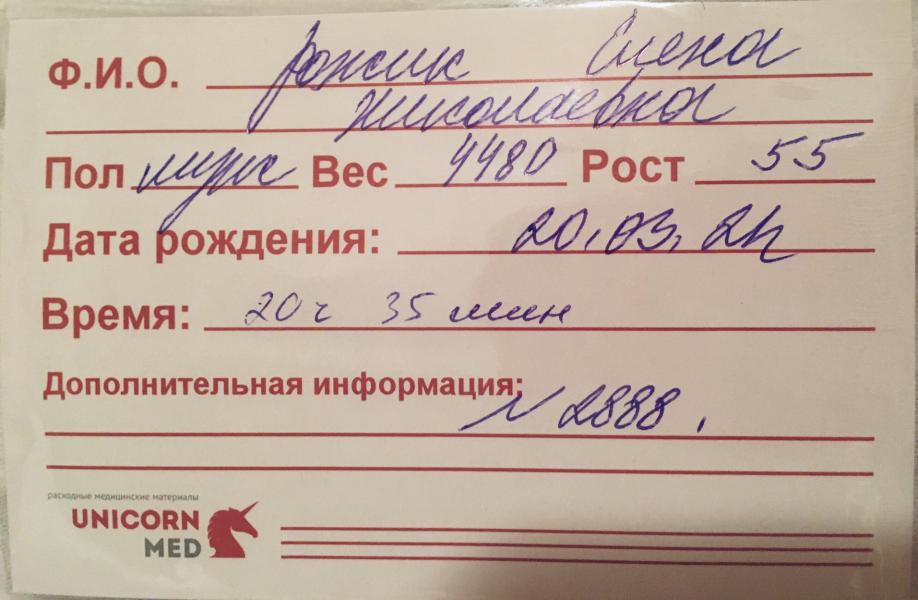 Ф.И.О. Рожик Елена
Николаевна
Пол муж Вес 4480 Рост 55
Дата рождения: 20.03.21г
Время: 20 ч 35 мин
Дополнительная информация:
N 2888.
расходные медицинские материалы
UNICORN
MED